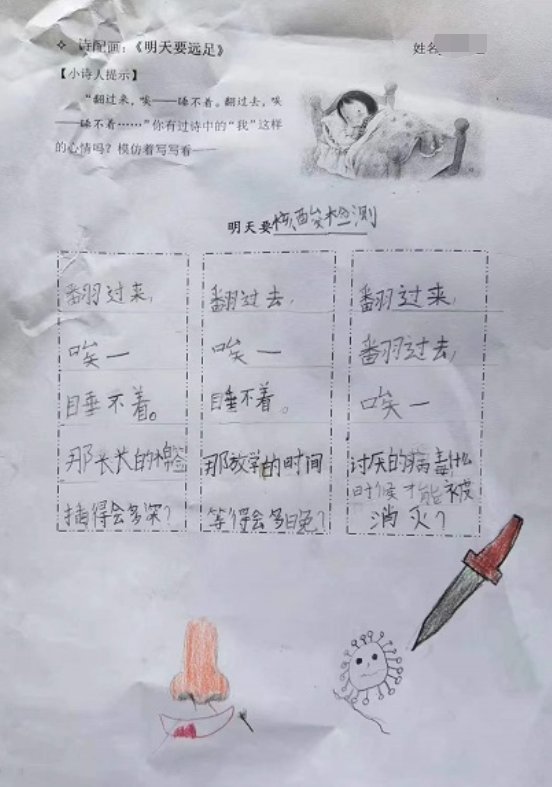 ✧ 诗配画：《明天要远足》
姓名
【小诗人提示】
“翻过来，唉——睡不着。翻过去，唉
——睡不着……”你有过诗中的“我”这样
的心情吗？模仿着写写看——
明天要核酸检测
翻过来，
唉一
睡不着。
那长长的棉签
插得会多深？
翻过去，
唉一
睡不着。
那放学的时间
等得会多晚？
翻过来，
翻过去，
唉一
讨厌的病毒什么
时候才能被
消灭？